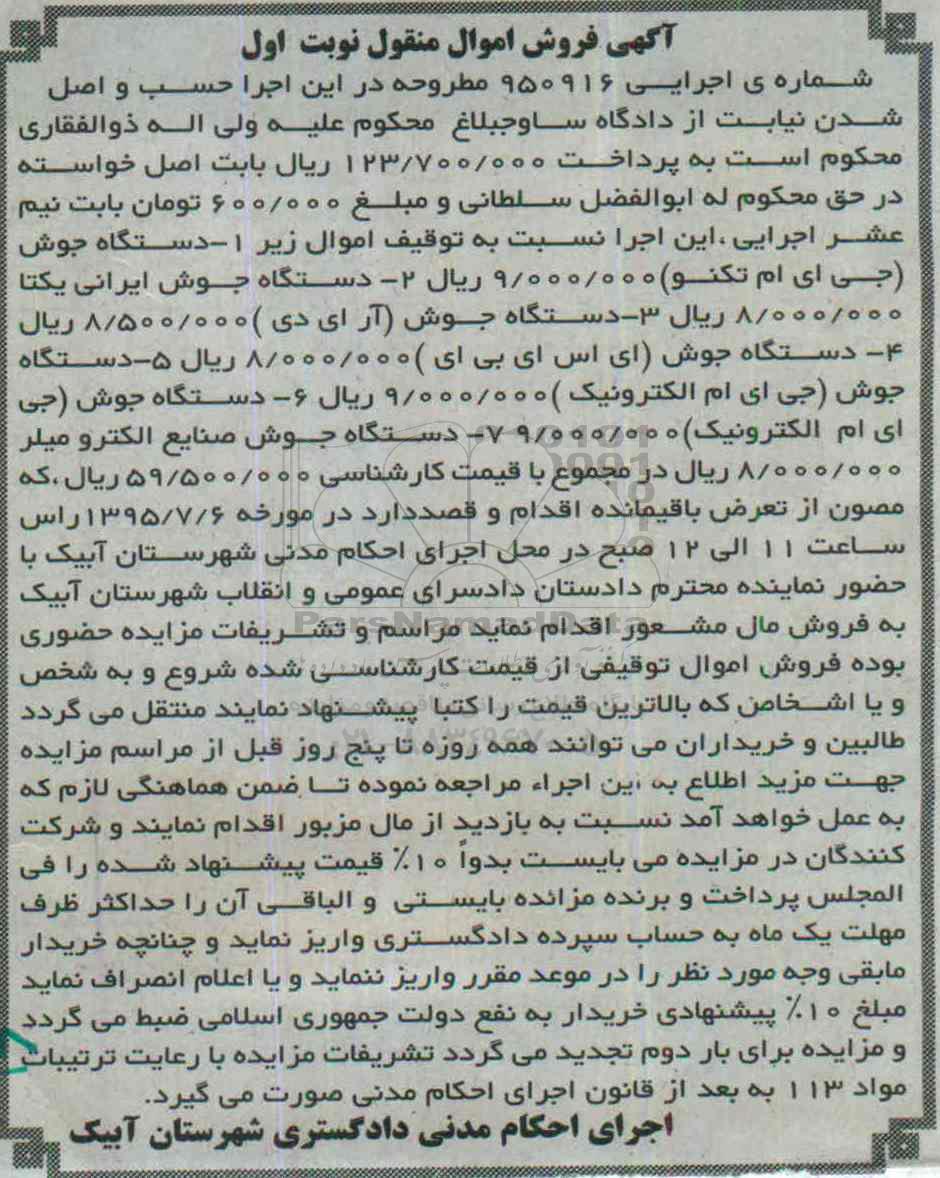 آگهی فروش اموال منقول نوبت اول
شماره ی اجرایی ۹۵۰۹۱۶ مطروحه در این اجرا حسب و اصل
شدن نیابت از دادگاه ساوجبلاغ محکوم علیه ولی اله ذوالفقاری
محکوم است به پرداخت ۱۲۳/۷۰۰/۰۰۰ ریال بابت اصل خواسته
در حق محکوم له ابوالفضل سلطانی و مبلغ ۶۰۰/۰۰۰ تومان بابت نیم
عشر اجرایی ،این اجرا نسبت به توقیف اموال زیر ۱-دستگاه جوش
(جی ای ام تکنو)۹/۰۰۰/۰۰۰ ریال ۲- دستگاه جوش ایرانی یکتا
۸/۰۰۰/۰۰۰ ریال ۳-دستگاه جوش (آر ای دی )۸/۵۰۰/۰۰۰ ریال
۴- دستگاه جوش (ای اس ای بی ای )۸/۰۰۰/۰۰۰ ریال ۵-دستگاه
جوش (جی ای ام الکترونیک )۹/۰۰۰/۰۰۰ ریال ۶- دستگاه جوش (جی
ای ام الکترونیک)۹/۰۰۰/۰۰۰ ۷- دستگاه جوش صنایع الکترو میلر
۸/۰۰۰/۰۰۰ ریال در مجموع با قیمت کارشناسی ۵۹/۵۰۰/۰۰۰ ریال ،که
مصون از تعرض باقیمانده اقدام و قصددارد در مورخه ۱۳۹۵/۷/۶راس
ساعت ۱۱ الی ۱۲ صبح در محل اجرای احکام مدنی شهرستان آبیک با
حضور نماینده محترم دادستان دادسرای عمومی و انقلاب شهرستان آبیک
به فروش مال مشعور اقدام نماید مراسم و تشریفات مزایده حضوری
بوده فروش اموال توقیفی از قیمت کارشناسی شده شروع و به شخص
و یا اشخاص که بالاترین قیمت را کتبا پیشنهاد نمایند منتقل می گردد
طالبین و خریداران می توانند همه روزه تا پنج روز قبل از مراسم مزایده
جهت مزید اطلاع به این اجراء مراجعه نموده تا ضمن هماهنگی لازم که
به عمل خواهد آمد نسبت به بازدید از مال مزبور اقدام نمایند و شرکت
کنندگان در مزایده می بایست بدواً ۱۰٪ قیمت پیشنهاد شده را فی
المجلس پرداخت و برنده مزائده بایستی و الباقی آن را حداکثر ظرف
مهلت یک ماه به حساب سپرده دادگستری واریز نماید و چنانچه خریدار
مابقی وجه مورد نظر را در موعد مقرر واریز ننماید و یا اعلام انصراف نماید
مبلغ ۱۰٪ پیشنهادی خریدار به نفع دولت جمهوری اسلامی ضبط می گردد
و مزایده برای بار دوم تجدید می گردد تشریفات مزایده با رعایت ترتیبات
مواد ۱۱۳ به بعد از قانون اجرای احکام مدنی صورت می گیرد.
اجرای احکام مدنی دادگستری شهرستان آبیک
ParsNamadData